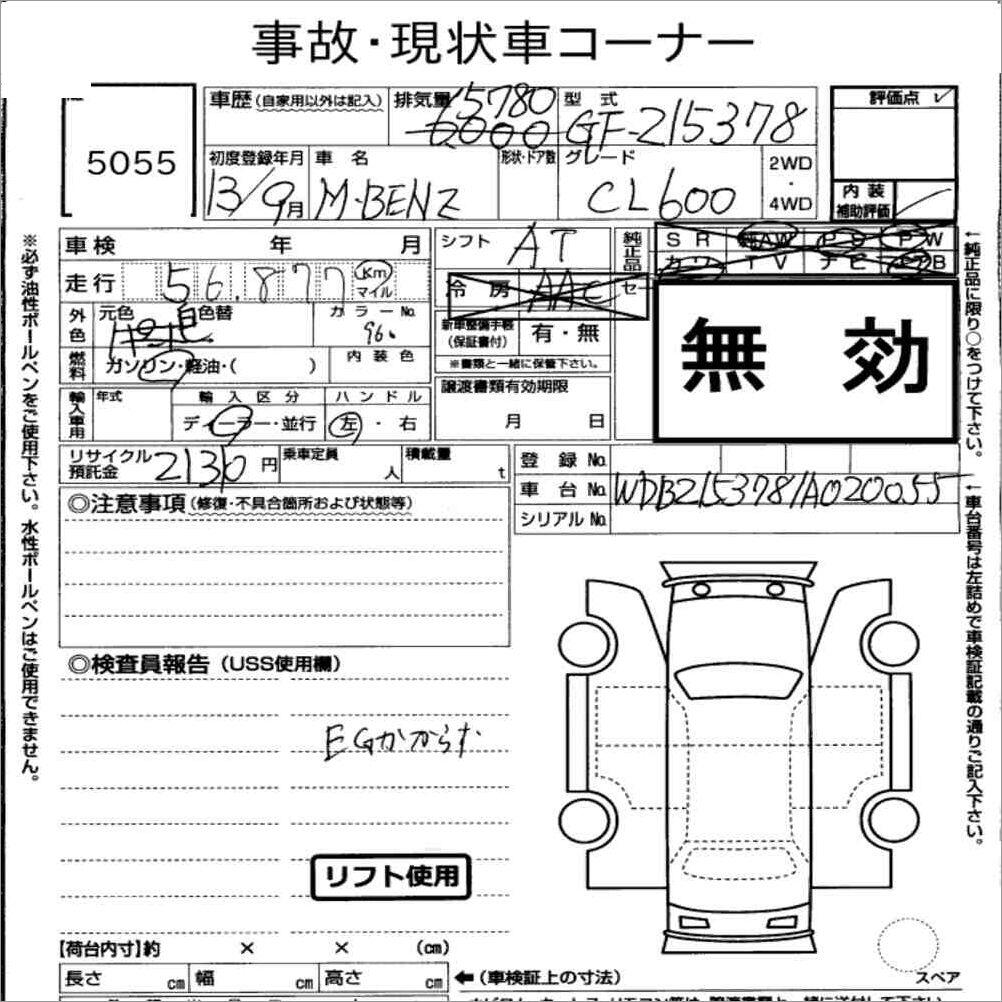 事故・現状車コーナー
5055
車歴 (自家用以外は記入) 排気量 型式 評価点
6000 5780 GF-215378
初度登録年月 車名 形状・ドア数 グレード 2WD・4WD 内装補助評価
13/9月 M・BENZ CL600
車検 年 月 シフト AT 純正品 SR 純AW PS PW
走行 56.877 Km マイル 冷房 AAC カワ TV ナビ
セ
外色 元色 色替 カラーNo. 960 新車整備手帳(保証書付) 有・無
無効
燃料 ガソリン・軽油・( ) 内装色 ※書類と一緒に保管下さい。
輸入車用 年式 輸入区分 ハンドル 譲渡書類有効期限
ディーラー・並行 左・右 月 日
リサイクル預託金 2130円 乗車定員 人 積載量 t 登録No.
車台No. WDB2153781A020055
シリアルNo.
◎注意事項 (修復・不具合箇所および状態等)
◎検査員報告 (USS使用欄)
EGかからず
リフト使用
【荷台内寸】約 × × (cm)
長さ cm 幅 cm 高さ cm ←(車検証上の寸法)
スペア
※必ず油性ボールペンをご使用下さい。水性ボールペンはご使用できません。
←純正品に限り○をつけて下さい。
←車台番号は左詰めで車検証記載の通りご記入下さい。